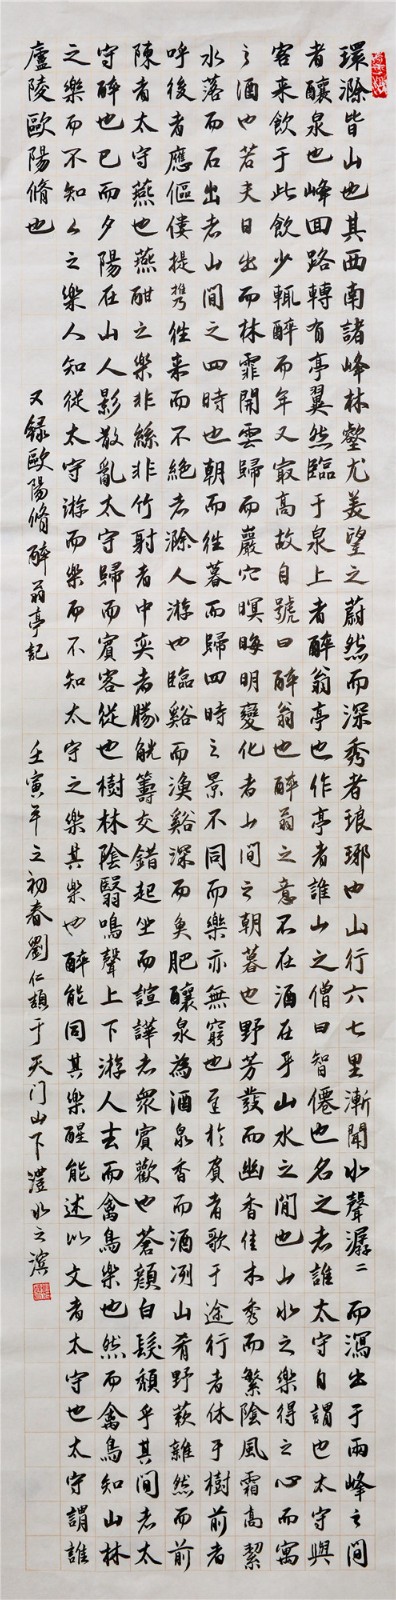 環滁皆山也其西南諸峰林壑尤美望之蔚然而深秀者琅琊也山行六七里漸聞水聲潺二 而瀉出于兩峰之間
者釀泉也峰回路轉有亭翼然臨于泉上者醉翁亭也作亭者誰山之僧曰智僊也名之者誰太守自謂也太守與
客來飲于此飲少輒醉而年又最高故自號曰醉翁也醉翁之意不在酒在乎山水之間也山水之樂得之心而寓
之酒也若夫日出而林霏開雲歸而巖穴暝晦明變化者山間之朝暮也野芳發而幽香佳木秀而繁陰風霜高潔
水落而石出者山間之四時也朝而往暮而歸四時之景不同而樂亦無窮也至於負者歌于途行者休于樹前者
呼後者應傴僂提攜往來而不絕者滁人游也臨谿而漁谿深而魚肥釀泉為酒泉香而酒洌山肴野蔌雜然而前
陳者太守燕也燕酣之樂非絲非竹射者中奕者勝觥籌交錯起坐而諠譁者眾賓歡也蒼顏白髮頹乎其間者太
守醉也已而夕陽在山人影散亂太守歸而賓客從也樹林陰翳鳴聲上下游人去而禽鳥樂也然而禽鳥知山林
之樂而不知人之樂人知從太守游而樂而不知太守之樂其樂也醉能同其樂醒能述以文者太守也太守謂誰
廬陵歐陽脩也 又錄歐陽脩醉翁亭記 壬寅年之初春劉仁于天门山下澧水之濱